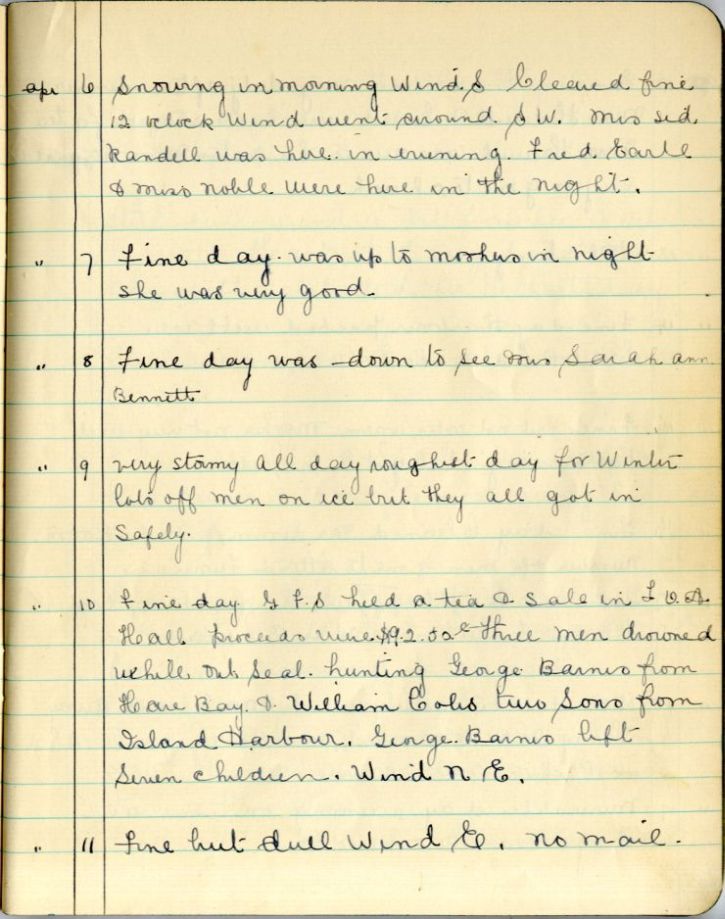 Apr 6 Snowing in morning Wind S Cleared fine
12 oclock Wind went around S W. Mrs Sid
Randell was here in evening. Fred Earle
& miss noble were here in the night.
" 7 Fine day. was up to moshers in night
she was very good.
" 8 Fine day was down to see mrs Sarah ann
Bennett
" 9 very stormy all day roughest day for Winter
lots off men on ice but they all got in
Safely.
" 10 Fine day G F S held a tea & sale in L O A
Hall Proceeds were $92.52 Three men drowned
while out Seal. hunting George Barnes from
Hare Bay. & William Coles two Sons from
Island Harbour. George. Barnes left
Seven children. Wind N E.
" 11 Fine but dull Wind E. no mail.